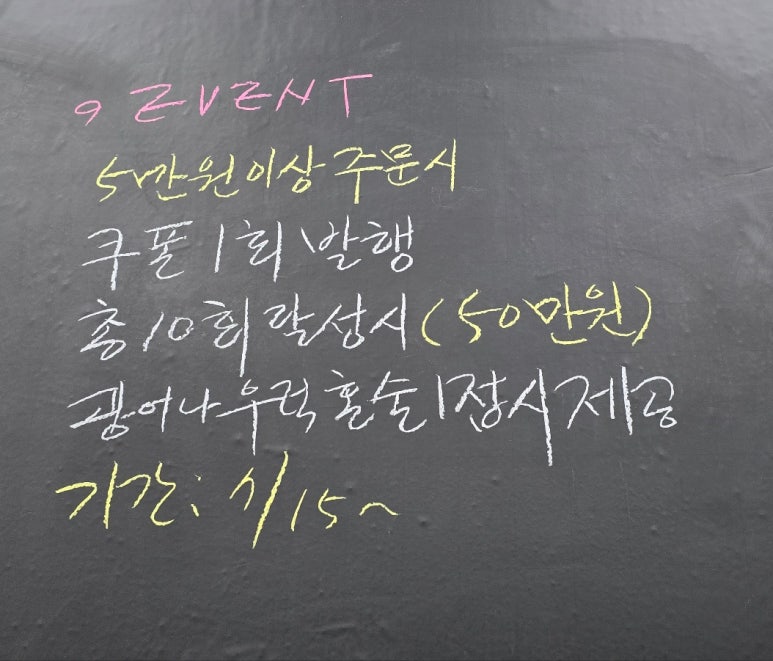 EVENT
5만원이상 주문시
쿠폰 1회 발행
총 10회 달성시 (50만원)
광어나 우럭 혼술 1접시 제공
기간: 1/15~